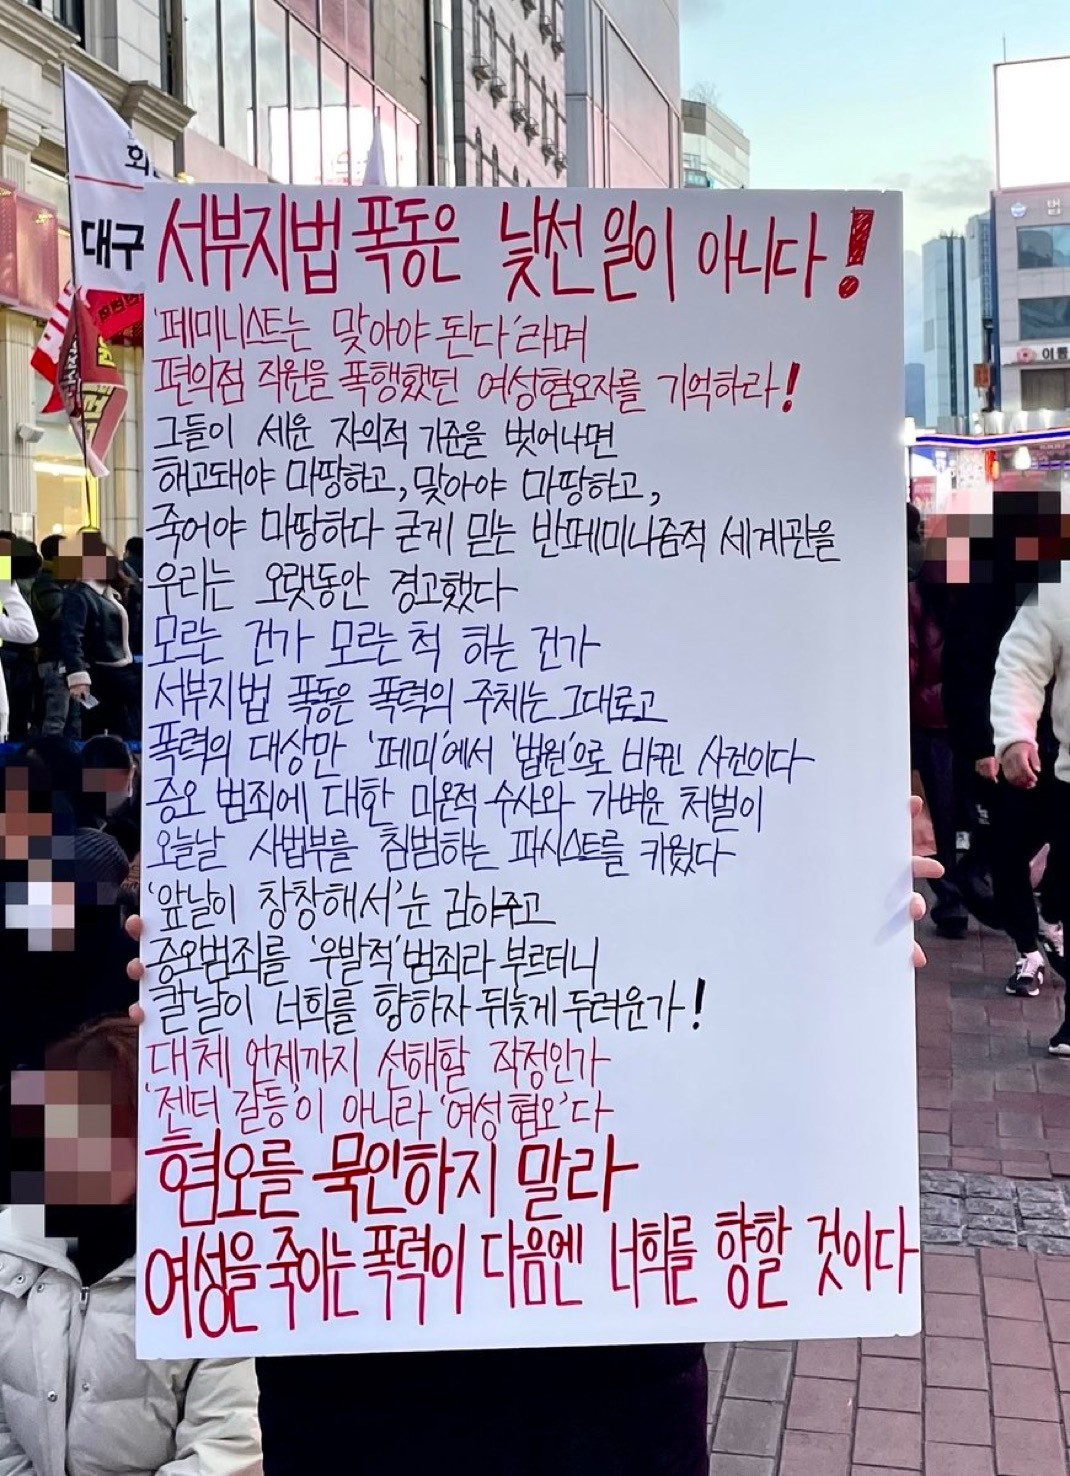 회
대구
법
이룸
서부지법 폭동은 낯선 일이 아니다!
'페미니스트는 맞아야 된다'라며
편의점 직원을 폭행했던 여성혐오자를 기억하라!
그들이 세운 자의적 기준을 벗어나면
해고돼야 마땅하고, 맞아야 마땅하고,
죽어야 마땅하다 굳게 믿는 반페미니즘적 세계관을
우리는 오랫동안 경고했다
모르는 건가 모르는 척 하는 건가
서부지법 폭동은 폭력의 주체는 그대로고
폭력의 대상만 '페미'에서 '법원'으로 바뀐 사건이다
증오 범죄에 대한 미온적 수사와 가벼운 처벌이
오늘날 사법부를 침범하는 파시스트를 키웠다
'앞날이 창창해서' 눈 감아주고
증오범죄를 '우발적' 범죄라 부르더니
칼날이 너희를 향하자 뒤늦게 두려운가!
대체 언제까지 선해할 작정인가
'젠더 갈등'이 아니라 '여성 혐오'다
혐오를 묵인하지 말라
여성을 죽이는 폭력이 다음엔 너희를 향할 것이다